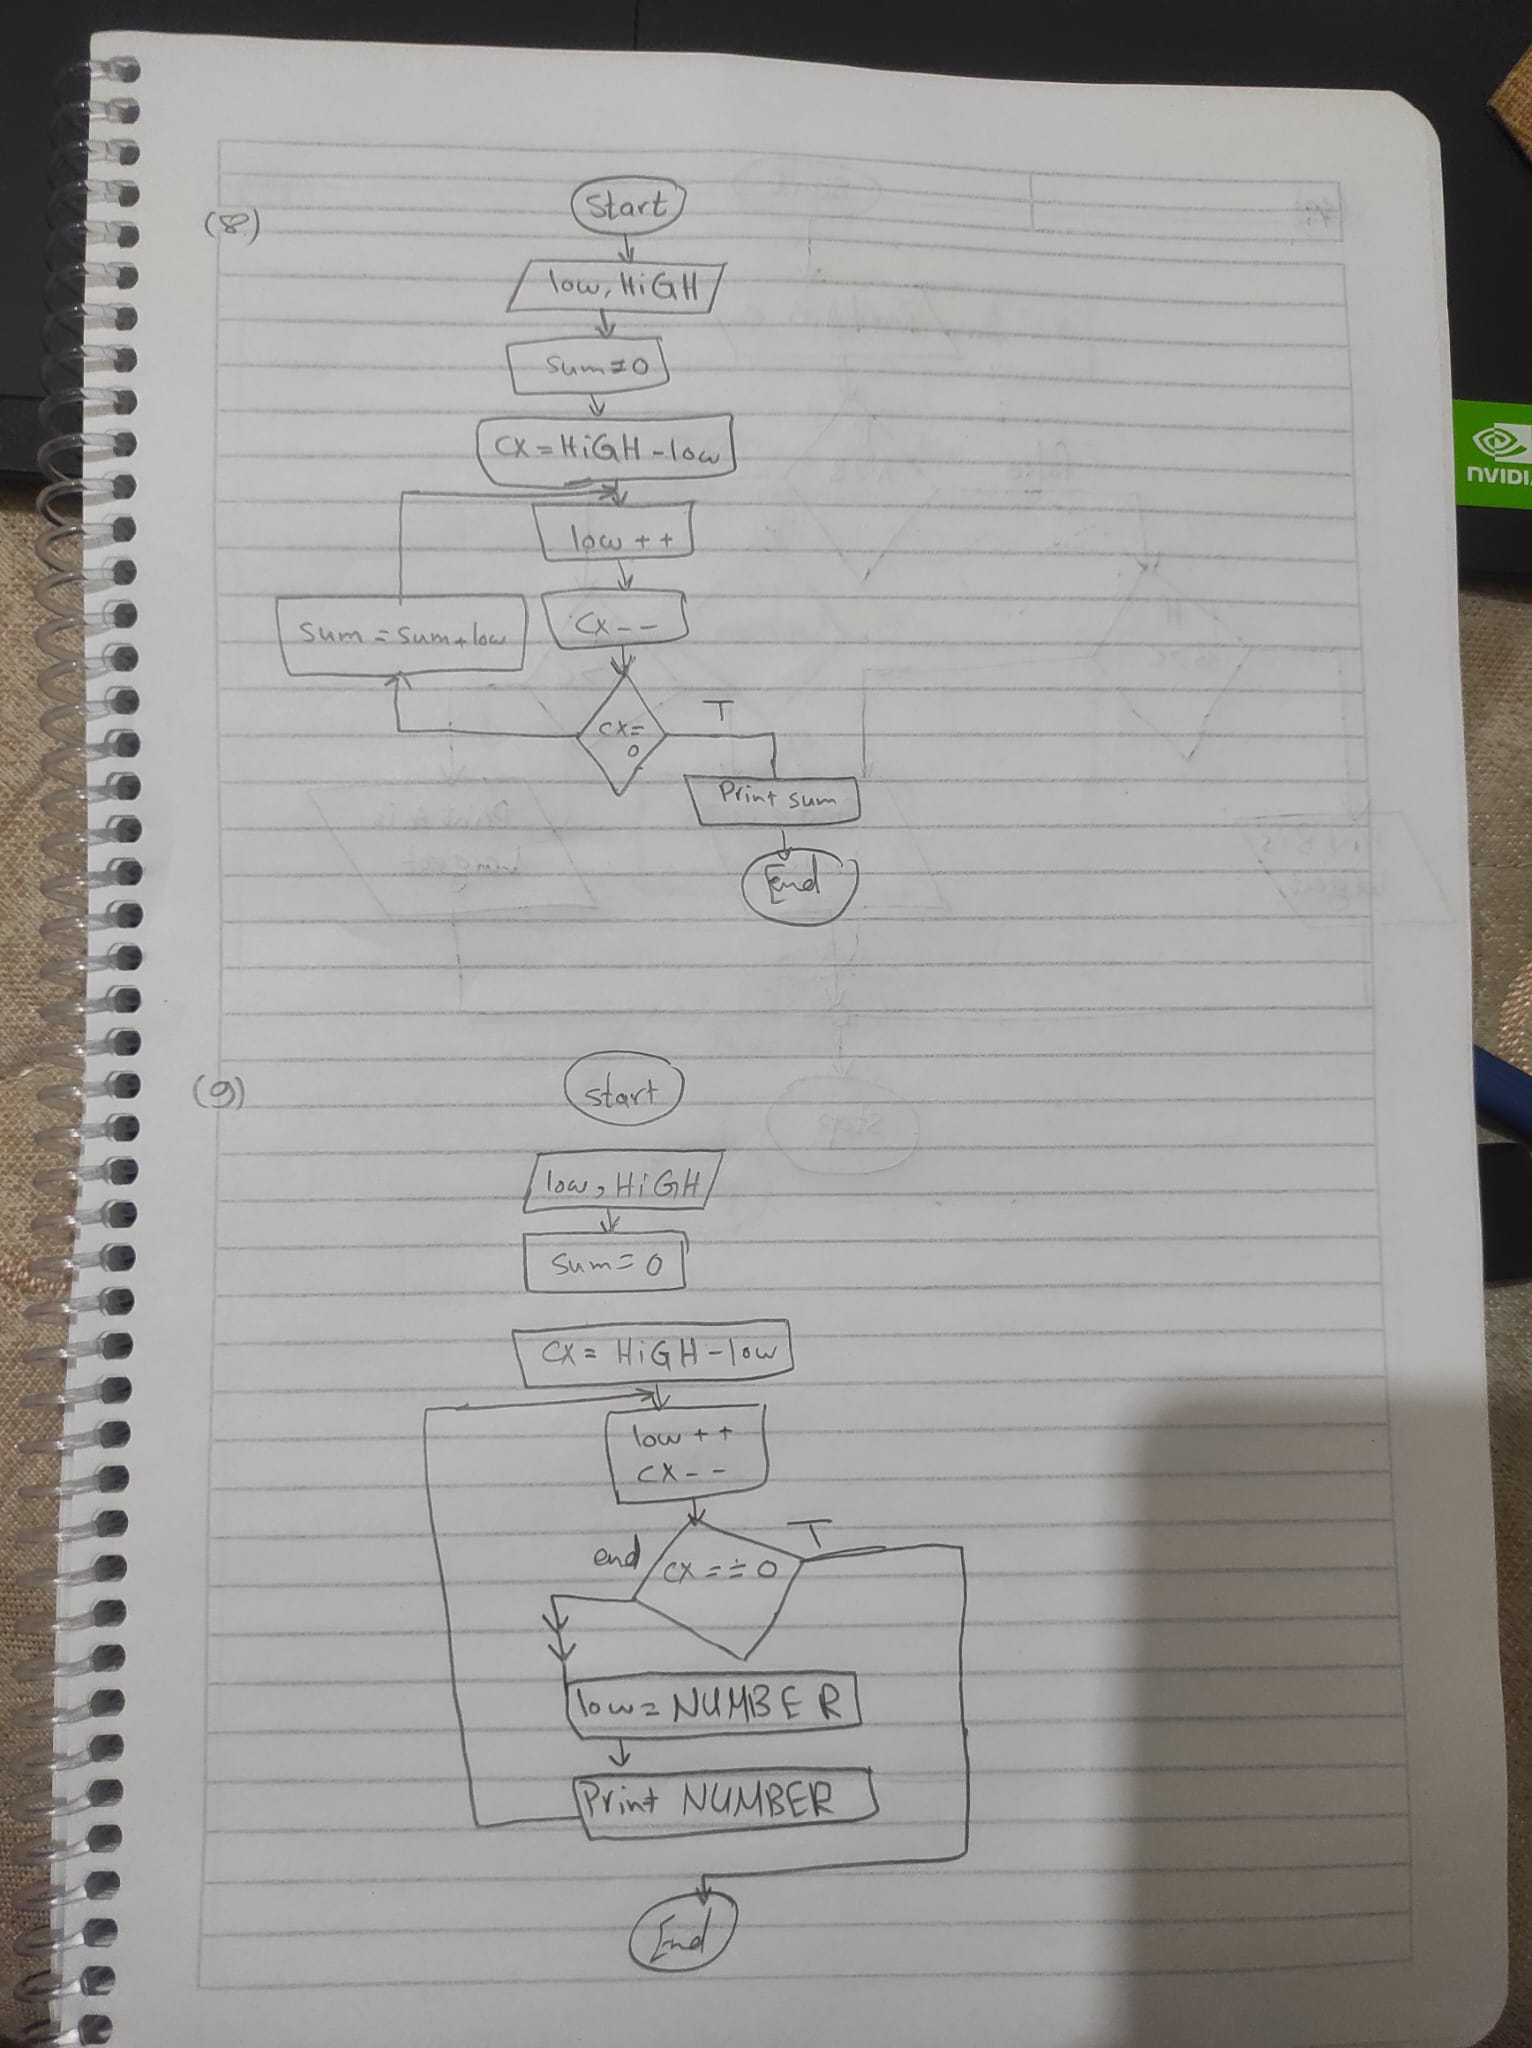 (8)
Start
low, HiGH
Sum=0
CX=HiGH-low
low ++
Sum = Sum+low
CX--
T
CX=
0
Print sum
End
NVIDI
(9)
Start
low, HiGH
Sum=0
CX= HiGH-low
low ++
CX--
T
end
CX==0
low= NUMBER
Print NUMBER
End